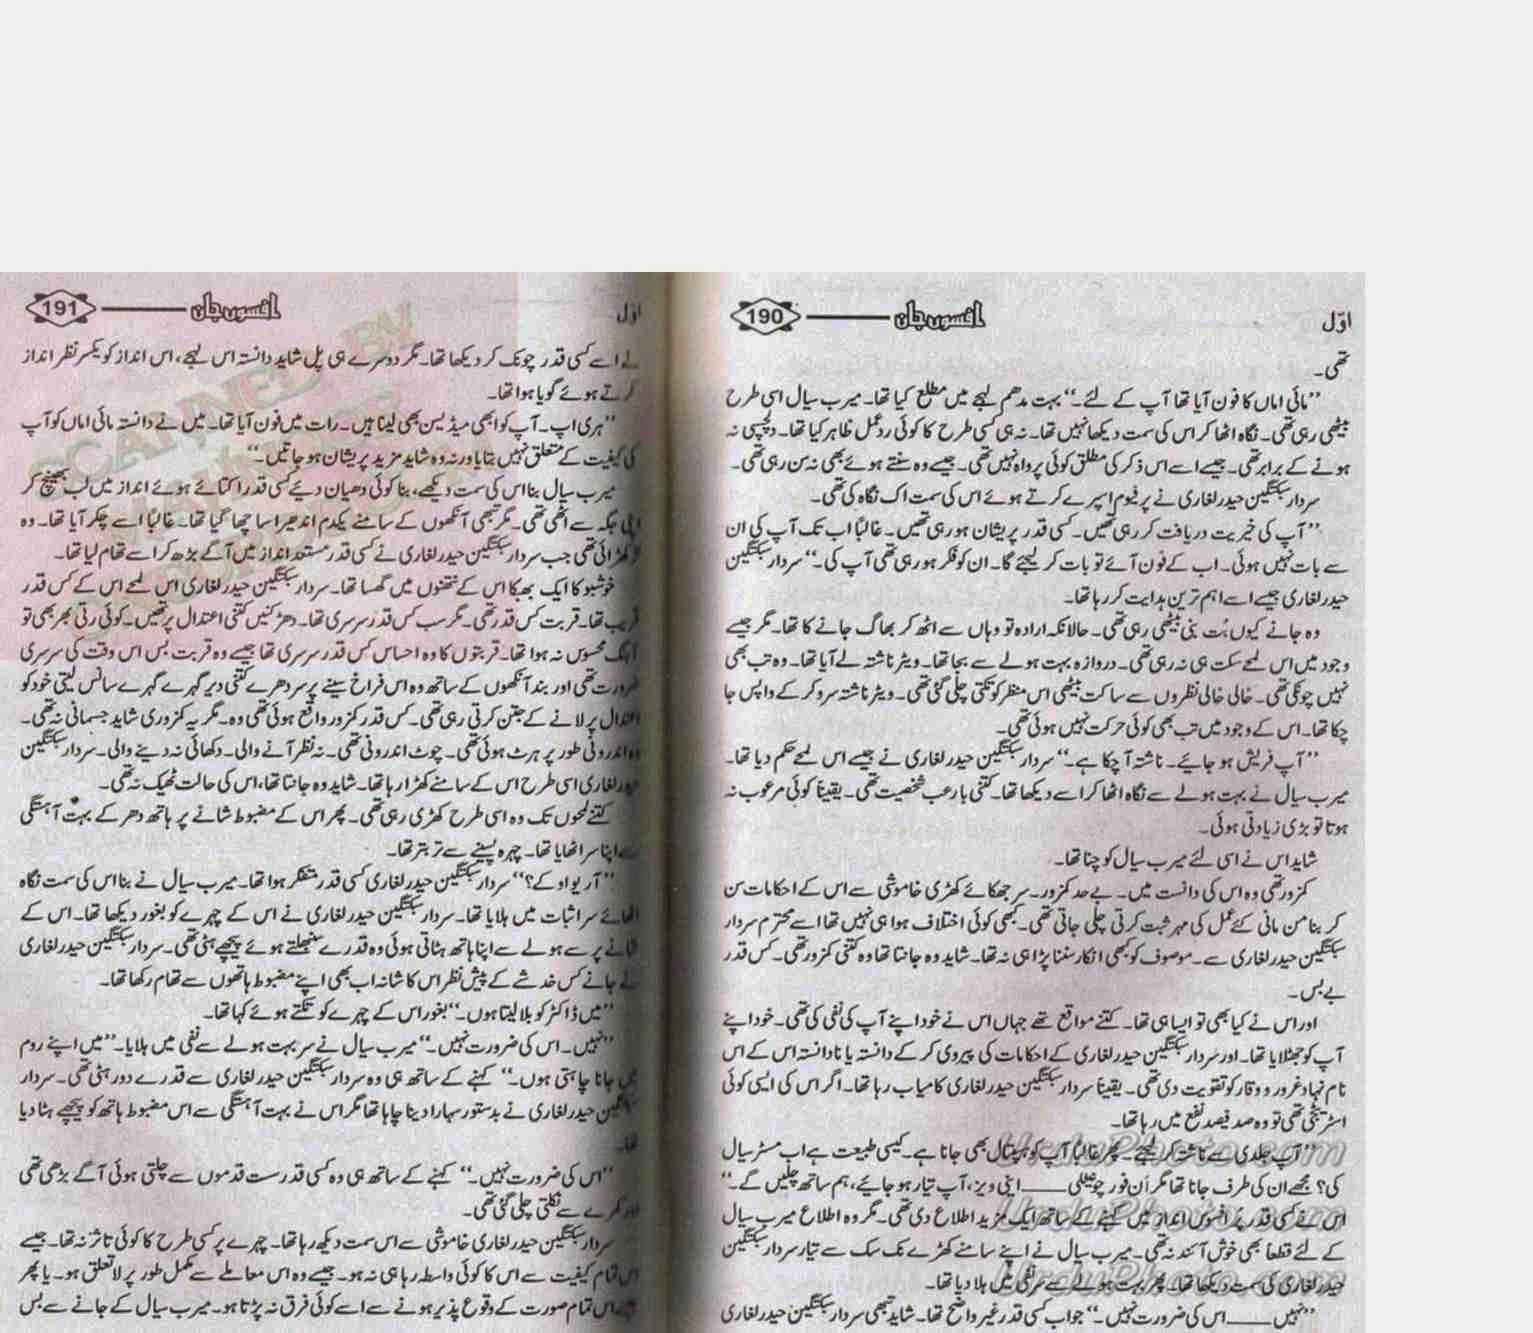 اوّل افسوں جان 190
تھی۔
”مائی اماں کا فون آیا تھا آپ کے لئے۔“ بہت مدھم لہجے میں مطلع کیا تھا۔ میرب سیال اسی طرح
بیٹھی رہی تھی۔ نگاہ اٹھا کر اس کی سمت دیکھا نہیں تھا۔ نہ ہی کسی طرح کا کوئی ردعمل ظاہر کیا تھا۔ دلچسپی نہ
ہونے کے برابر تھی۔ جیسے اسے اس ذکر کی مطلق کوئی پرواہ نہیں تھی۔ جیسے وہ سنتے ہوئے بھی نہ سن رہی تھی۔
سردار سبکتگین حیدر لغاری نے پرفیوم اسپرے کرتے ہوئے اس کی سمت اک نگاہ کی تھی۔
”آپ کی خیریت دریافت کر رہی تھیں۔ کسی قدر پریشان ہو رہی تھیں۔ غالباً اب تک آپ کی ان
سے بات نہیں ہوئی۔ اب کے فون آئے تو بات کر لیجئے گا۔ ان کو فکر ہو رہی تھی آپ کی۔“ سردار سبکتگین
حیدر لغاری جیسے اسے اہم ترین ہدایت کر رہا تھا۔
وہ جانے کیوں بُت بنی بیٹھی رہی تھی۔ حالانکہ ارادہ تو وہاں سے اٹھ کر بھاگ جانے کا تھا۔ مگر جیسے
وجود میں اس لمحے سکت ہی نہ رہی تھی۔ دروازہ بہت ہولے سے بجا تھا۔ ویٹر ناشتہ لے آیا تھا۔ وہ تب بھی
نہیں چونکی تھی۔ خالی خالی نظروں سے ساکت بیٹھی اس منظر کو تکتی چلی گئی تھی۔ ویٹر ناشتہ سرو کر کے واپس جا
چکا تھا۔ اس کے وجود میں تب بھی کوئی حرکت نہیں ہوئی تھی۔
”آپ فریش ہو جائیے۔ ناشتہ آ چکا ہے۔“ سردار سبکتگین حیدر لغاری نے جیسے اس لمحے حکم دیا تھا۔
میرب سیال نے بہت ہولے سے نگاہ اٹھا کر اسے دیکھا تھا۔ کتنی بارعب شخصیت تھی۔ یقیناً کوئی مرعوب نہ
ہوتا تو بڑی زیادتی ہوئی۔
شاید اس نے اسی لئے میرب سیال کو چنا تھا۔
کمزور تھی وہ اس کی دانست میں۔ بے حد کمزور۔ سر جھکائے کھڑی خاموشی سے اس کے احکامات سن
کر بنا من مانی کئے عمل کی مہر ثبت کرتی چلی جاتی تھی۔ کبھی کوئی اختلاف ہوا ہی نہیں تھا اسے محترم سردار
سبکتگین حیدر لغاری سے۔ موصوف کو کبھی انکار سننا پڑا ہی نہ تھا۔ شاید وہ جانتا تھا وہ کتنی کمزور تھی۔ کس قدر
بے بس۔
اور اس نے کیا بھی تو ایسا ہی تھا۔ کتنے مواقع تھے جہاں اس نے خود اپنے آپ کی نفی کی تھی۔ خود اپنے
آپ کو جھٹلایا تھا۔ اور سردار سبکتگین حیدر لغاری کے احکامات کی پیروی کر کے دانستہ یا نادانستہ اس کے اس
نام نہاد غرور و وقار کو تقویت دی تھی۔ یقیناً سردار سبکتگین حیدر لغاری کامیاب رہا تھا۔ اگر اس کی ایسی کوئی
اسٹریٹجی تھی تو وہ صد فیصد نفع میں رہا تھا۔
”آپ جلدی سے ناشتہ کر لیجئے۔ پھر غالباً آپ کو ہسپتال بھی جانا ہے۔ کیسی طبیعت ہے اب مسٹر سیال
کی؟ مجھے ان کی طرف جانا تھا مگر ان فورچونیٹلی ـــــ اینی ویز، آپ تیار ہو جائیے، ہم ساتھ چلیں گے۔“
اس نے کسی قدر پُر افسوس انداز میں کہنے کے ساتھ ایک مزید اطلاع دی تھی۔ مگر وہ اطلاع میرب سیال
کے لئے قطعاً بھی خوش آئند نہ تھی۔ میرب سیال نے اپنے سامنے کھڑے تک سک سے تیار سردار سبکتگین
حیدر لغاری کی سمت دیکھا تھا۔ پھر بہت ہولے سے سر نفی میں ہلا دیا تھا۔
”نہیں ـــــ اس کی ضرورت نہیں۔“ جواب کسی قدر غیر واضح تھا۔ شاید تبھی سردار سبکتگین حیدر لغاری
اوّل افسوں جان 191
نے اسے کسی قدر چونک کر دیکھا تھا۔ مگر دوسرے ہی پل شاید دانستہ اس لہجے، اس انداز کو یکسر نظر انداز
کرتے ہوئے گویا ہوا تھا۔
”ہری اپ۔ آپ کو ابھی میڈیسن بھی لینا ہیں۔ رات میں فون آیا تھا۔ میں نے دانستہ مائی اماں کو آپ
کی کیفیت کے متعلق نہیں بتایا ورنہ وہ شاید مزید پریشان ہو جاتیں۔“
میرب سیال بنا اس کی سمت دیکھے، بنا کوئی دھیان دیئے کسی قدر اکتائے ہوئے انداز میں لب بھینچ کر
اپنی جگہ سے اٹھی تھی۔ مگر تبھی آنکھوں کے سامنے یکدم اندھیرا سا چھا گیا تھا۔ غالباً اسے چکر آیا تھا۔ وہ
لڑکھڑائی تھی جب سردار سبکتگین حیدر لغاری نے کسی قدر مستعد انداز میں آگے بڑھ کر اسے تھام لیا تھا۔
خوشبو کا ایک بھبکا اس کے نتھنوں میں گھسا تھا۔ سردار سبکتگین حیدر لغاری اس لمحے اس کے کس قدر
قریب تھا۔ قربت کس قدر تھی۔ مگر سب کس قدر سرسری تھا۔ دھڑکنیں کتنی اعتدال پر تھیں۔ کوئی رتی بھر بھی تو
آہنگ محسوس نہ ہوا تھا۔ قربتوں کا وہ احساس کس قدر سرسری تھا جیسے وہ قربت بس اس وقت کی سرسری
ضرورت تھی اور بند آنکھوں کے ساتھ وہ اس فراخ سینے پر سر دھرے کتنی دیر گہرے گہرے سانس لیتی خود کو
اعتدال پر لانے کے جتن کرتی رہی تھی۔ کس قدر کمزور واقع ہوئی تھی وہ۔ مگر یہ کمزوری شاید جسمانی نہ تھی۔
وہ اندرونی طور پر ہرٹ ہوئی تھی۔ چوٹ اندرونی تھی۔ نہ نظر آنے والی۔ دکھائی نہ دینے والی۔ سردار سبکتگین
حیدر لغاری اسی طرح اس کے سامنے کھڑا رہا تھا۔ شاید وہ جانتا تھا، اس کی حالت ٹھیک نہ تھی۔
کتنے لمحوں تک وہ اسی طرح کھڑی رہی تھی۔ پھر اس کے مضبوط شانے پر ہاتھ دھر کے بہت آہستگی
سے اپنا سر اٹھایا تھا۔ چہرہ پسینے سے تر بتر تھا۔
”آر یو او کے؟“ سردار سبکتگین حیدر لغاری کسی قدر متفکر ہوا تھا۔ میرب سیال نے بنا اس کی سمت نگاہ
اٹھائے سر اثبات میں ہلایا تھا۔ سردار سبکتگین حیدر لغاری نے اس کے چہرے کو بغور دیکھا تھا۔ اس کے
شانے پر سے ہولے سے اپنا ہاتھ ہٹاتی ہوئی وہ قدرے سنبھلتے ہوئے پیچھے ہٹی تھی۔ سردار سبکتگین حیدر لغاری
نے جانے کس خدشے کے پیش نظر اس کا شانہ اب بھی اپنے مضبوط ہاتھوں سے تھام رکھا تھا۔
”میں ڈاکٹر کو بلا لیتا ہوں۔“ بغور اس کے چہرے کو تکتے ہوئے کہا تھا۔
”نہیں۔ اس کی ضرورت نہیں۔“ میرب سیال نے سر بہت ہولے سے نفی میں ہلایا۔ ”میں اپنے روم
میں جانا چاہتی ہوں۔“ کہنے کے ساتھ ہی وہ سردار سبکتگین حیدر لغاری سے قدرے دور ہٹی تھی۔ سردار
سبکتگین حیدر لغاری نے بدستور سہارا دینا چاہا تھا مگر اس نے بہت آہستگی سے اس مضبوط ہاتھ کو پیچھے ہٹا دیا
تھا۔
”اس کی ضرورت نہیں۔“ کہنے کے ساتھ ہی وہ کسی قدر ست قدموں سے چلتی ہوئی آگے بڑھی تھی
اور کمرے سے نکلتی چلی گئی تھی۔
سردار سبکتگین حیدر لغاری خاموشی سے اس سمت دیکھ رہا تھا۔ چہرے پر کسی طرح کا کوئی تاثر نہ تھا۔ جیسے
اس تمام کیفیت سے اس کا کوئی واسطہ رہا ہی نہ ہو۔ جیسے وہ اس معاملے سے مکمل طور پر لاتعلق ہو۔ یا پھر
جیسے اس تمام صورت کے وقوع پذیر ہونے سے اسے کوئی فرق نہ پڑتا ہو۔ میرب سیال کے جانے سے بس
SCANNED BY
UrduPhoto.com
UrduPhoto.com
UrduPhoto.com